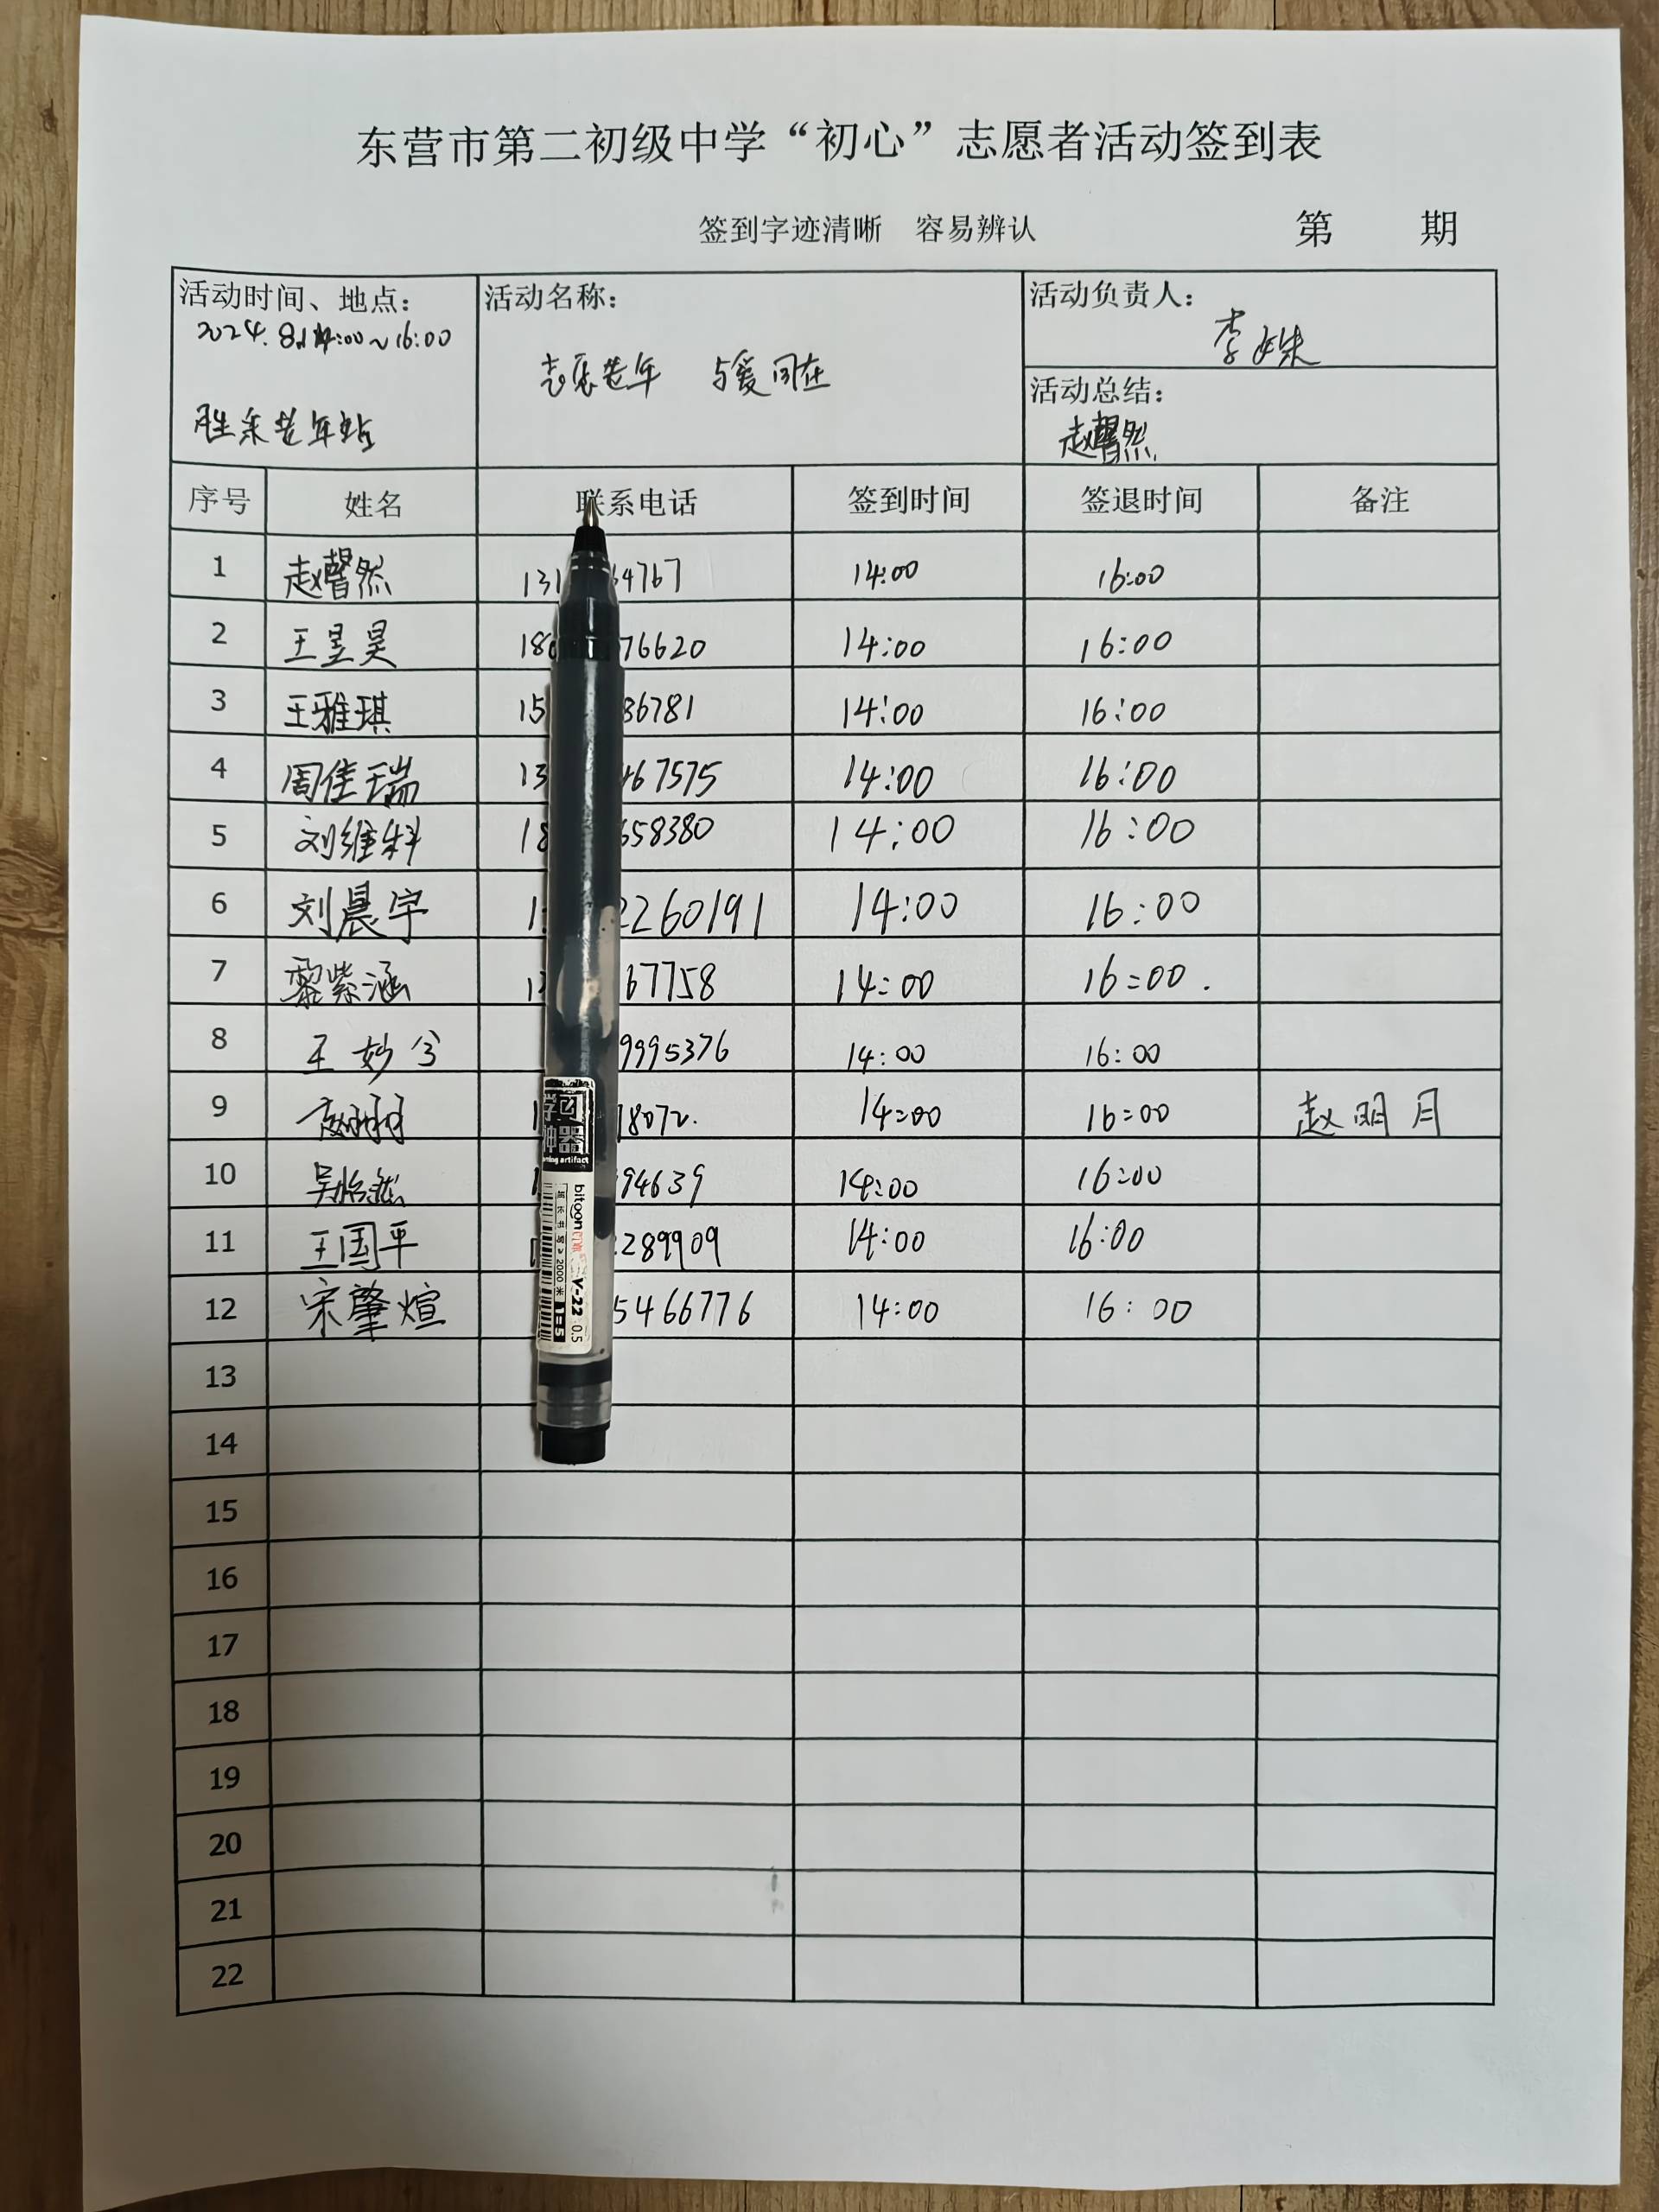 东营市第二初级中学“初心”志愿者活动签到表
签到字迹清晰 容易辨认 第 期
活动时间、地点： 活动名称： 活动负责人：
14:00~16:00
与爱同在
李姝
活动总结：
赵馨然
老年站
序号 姓名 联系电话 签到时间 签退时间 备注
1 赵馨然 131 64767 14:00 16:00
2 王昱昊 180 76620 14:00 16:00
3 王雅琪 15 86781 14:00 16:00
4 周佳瑞 13 467575 14:00 16:00
5 刘维科 18 658380 14:00 16:00
6 刘晨宇 1 2260191 14:00 16:00
7 黎紫涵 1 67758 14:00 16:00.
8 王妙兮 9995376 14:00 16:00
9 1 18072. 14:00 16:00 赵明月
10 吴怡然 94639 14:00 16:00
11 王国平 289909 14:00 16:00
12 宋肇煊 5466776 14:00 16:00
13
14
15
16
17
18
19
20
21
22
学习
神器
learning artifact
bitoon
2000米
V-22 0.5